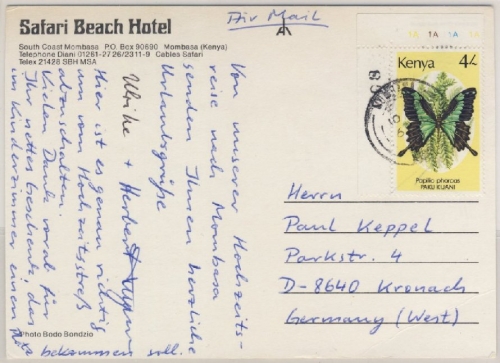 Safari Beach Hotel
South Coast Mombasa P.O. Box 90690 Mombasa (Kenya)
Telephone Diani 01261-27 26/2311-9 Cables Safari
Telex 21426 SBH MSA
Air Mail
1A 1A 1A
Kenya 4/-
Papilio phorcas
PAKU KIJANI
Von unserer Hochzeits-
reise nach Mombasa
senden Ihnen herzliche
Urlaubsgrüße
Ulrike + Herbert
Hier ist es genau richtig
um vom Hochzeitsstreß
abzuschalten.
Vielen Dank vorab für
Ihr nettes Geschenk, das
im Kinderzimmer einen Platz
bekommen soll.
Herrn
Paul Keppel
Parkstr. 4
D-8640 Kronach
Germany (West)
Photo Bodo Bondzio